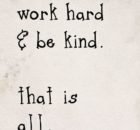 work hard
& be kind.
that is
all.